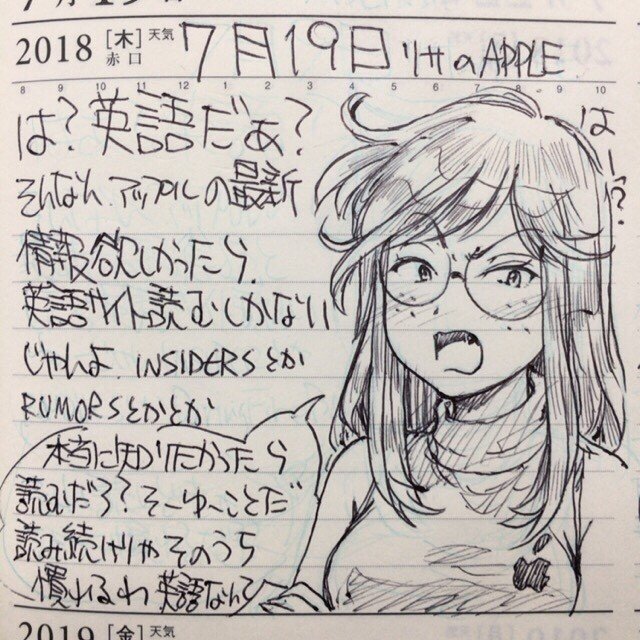 2018 [木] 天気 7月19日 リサのAPPLE
赤口
8 9 10 11 12 1 2 3 4 5 6 7 8 9 10
は?英語だぁ?
はー?
そんなん、アップルの最新
情報欲しかったら、
英語サイト読むしかない
じゃんよ、INSIDERSとか
RUMORSとかとか
本当に知りたかったら
読むだろ?そーゆーことだ
読み続けりゃそのうち
慣れるわ英語なんて
2019 [金] 天気